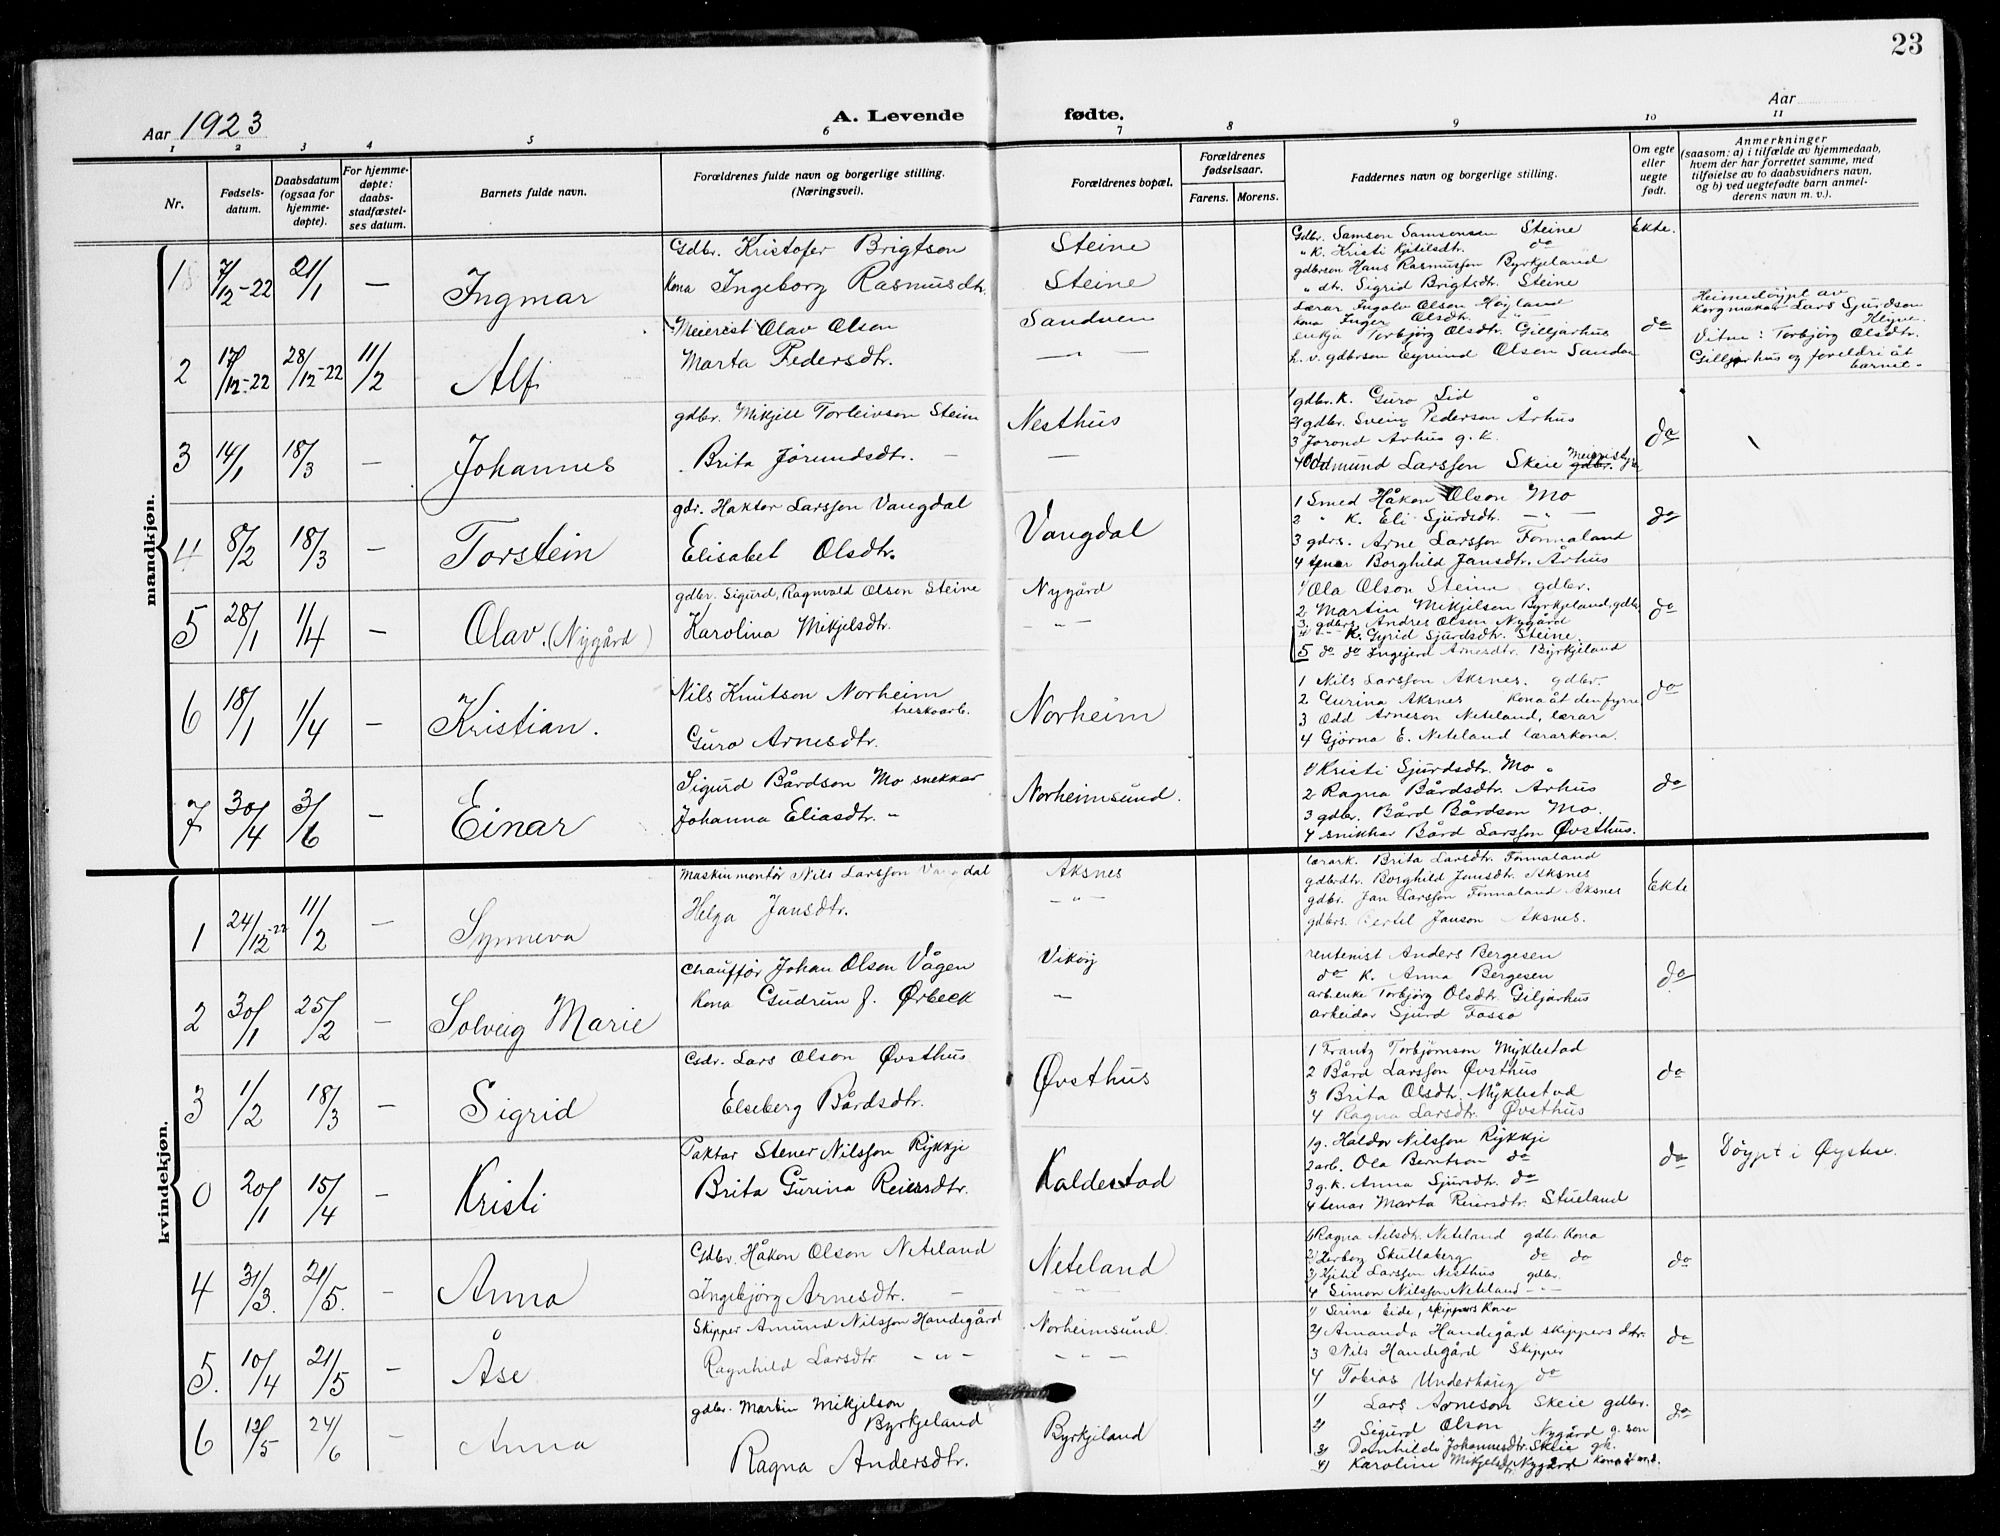 23
Aar 1923
A. Levende fødte.
Aar
1 2 3 4 5 6 7 8 9 10 11
Nr.
Fødsels-
datum.
Daabsdatum
(ogsaa for
hjemme-
døpte).
For hjemme-
døpte:
daabs-
stadfæstel-
ses datum.
Barnets fulde navn.
Forældrenes fulde navn og borgerlige stilling.
(Næringsvei).
Forældrenes bopæl.
Forældrenes
fødselsaar.
Farens. Morens.
Faddernes navn og borgerlige stilling.
Om egte
eller
uegte
født.
Anmerkninger
(saasom: a) i tilfælde av hjemmedaab,
hvem der har forrettet samme, med
tilføielse av to daabsvidners navn,
og b) ved uegtefødte barn anmel-
derens navn m. v.).
mandkjøn.
1 7/12-22 21/1 — Ingmar
Gdbr. Kristofer Brigtson Steine
Kona Ingeborg Rasmusdtr. Steine
Gdbr. Samson Samsonsen Steine Ekte.
" K. Kristi Kjitilsdtr. do
gdbrson Hans Rasmussen Byrkjeland
" dtr. Sigrid Brigtsdtr. Steine
2 17/12-22 28/12-22 11/2 Alf
Meierist Olav Olson Sandven
Marta Pedersdtr. — " —
Lærar Ingolv Olson Højland
kona Inger Olsdtr. — " —
enkja Torbjørg Olsdtr. Giljarhus do
h. v. gdbrson Eyvind Olsen Sandven
Heimedøypt av
korgmakar Lars Sjurdson
Vitne: Torbjörg Olsdtr.
Giljarhus og foreldri åt
barnet.
3 14/1 18/3 — Johannes
gdbr. Mikjell Torleivson Steine Nesthus
Brita Jørundsdtr. —
1 gdbr. K. Guro Lid
2 gdbr. Svein Pederson Århus
3 Jorond Århus g. k. do
4 Oddmund Larsson Skeie Meierist
4 8/2 18/3 — Torstein
gdr. Haktor Larsson Vangdal Vangdal
Elisabet Olsdtr.
1 Smed Håkon Olson Mo
2 " K. Eli Sjurdsdtr. — " — do
3 gdrs. Arne Larsson Fonnaland
4 tenar Borghild Jansdtr. Århus
5 28/1 1/4 — Olav. (Nygård)
gdbr. Sigurd, Ragnvald Olson Steine Nygård
Karolina Mikjelsdtr. — " —
1 Ola Olson Steine gdbr.
2 Martin Mikjelsen Byrkjeland, gdbr. do
3. gdbrs. Andres Olsen Nygård
4 " K. Gyrid Sjurdsdtr. Steine.
5 do do Ingejerd Arnesdtr. Byrkjeland
6 18/1 1/4 — Kristian.
Nils Knutson Norheim Norheim
treskoarb.
Guro Arnesdtr.
1 Nils Larsson Aksnes. gdbr.
2 Gurina Aksnes kona åt den fyrre do
3 Odd Arneson Neteland, lærar
4 Gjørna E. Neteland lærarkona.
7 30/4 3/6 — Einar
Sigurd Bårdson Mo snekkar Norheimsund.
Johanna Eliasdtr. "
1 Kristi Sjurdsdtr. Mo
2 Ragna Bårdsdtr. Århus do
3 gdbr. Bård Bårdson Mo.
4 snikkar Bård Larsson Øvsthus.
kvindekjøn.
1 24/12-22 11/2 — Synneva
Maskinmontør Nils Larsson Vangdal Aksnes
Helga Jansdtr. — " —
lærark. Brita Larsdtr. Fonnaland
gdbrdtr. Borghild Jansdtr. Aksnes Ekte
gdbr. Jan Larsson Fonnaland Aksnes
gdbrs. Bertil Janson Aksnes.
2 30/1 25/2 — Solveig Marie
Chauffør Johan Olson Vågen Vikøy
Kona Gudrun f. Ørbeck —
rentenist Anders Bergesen
do K. Anna Bergesen do
arb.enke Torbjörg Olsdtr. Giljarhus
arbeidar Sjurd Fosso
3 1/2 18/3 — Sigrid
Gdr. Lars Olson Øvsthus Øvsthus
Elseberg Bårdsdtr.
1 Frantz Torbjørnson Myklestad
2 Bård Larsson Øvsthus do
3 Brita Olsdtr. Myklestad
4 Ragna Larsdtr. Øvsthus
0 20/1 15/4 — Kristi
Paktar Stener Nilsson Rykkje Kaldestad
Brita Gurina Reiersdtr.
1 g. Haldor Nilsson Rykkje
2 arb. Ola Berntson do do
3 g.k. Anna Sjursdtr. do
4 tenar Marta Reiersdtr. Stueland
Döypt i Øystese.
4 31/3. 21/5. — Anna
Gdbr. Håkon Olson Neteland Neteland
Ingebjörg Arnesdtr. —
1 Ragna Nilsdtr. Neteland gdbr. Kona
2 Herborg Skutlaberg do do do
3 Kjetil Larsson Nesthus gdbr.
4 Simon Nilsson Neteland — " —
5. 10/4 21/5 — Åse
Skipper Amund Nilsson Handegård Norheimsund.
Ragnhild Larsdtr — " — — " —
1 Serina Eide, skippers kona
2 Amanda Handegård skippers dtr. do
3 Nils Handegård Skipper
4 Tobias Underhaug do
6 12/5 24/6 — Anna
gdbr. Martin Mikjelson Byrkjeland
Byrkjeland
Ragna Andersdtr.
1 Lars Arneson Skeie gdbr.
2 Sigurd Olson Nygård g. son do
3 Domhilde Johannesdtr. Skeie gk.
4 Karoline Mikjelsdtr. Nygård